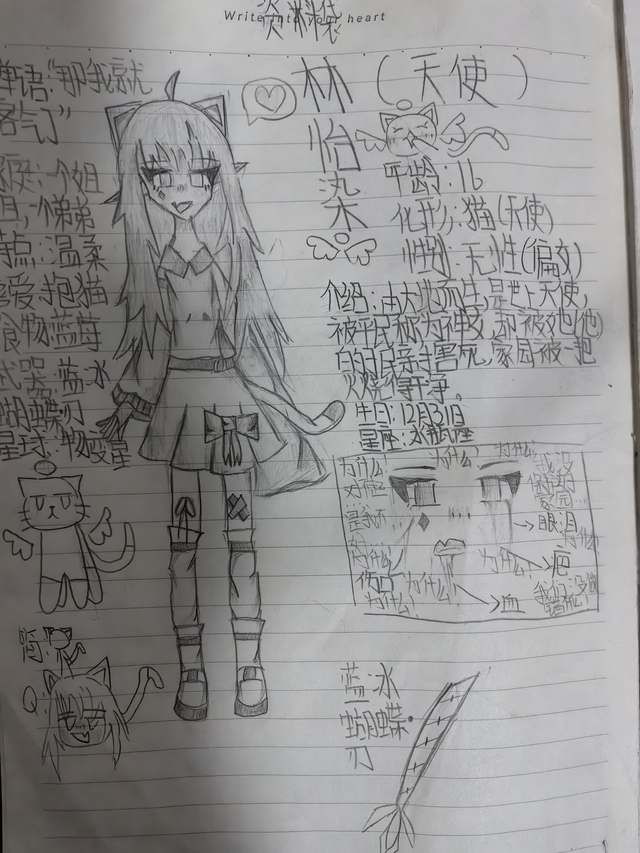 资料袋
Write into your heart
单语:"那我就
客气了"
林(天使)
怡
染
年龄:16
化形:猫(天使)
性别:无性(偏女)
个姐
个弟弟
温柔
爱:抱猫
食物:蓝莓
武器:蓝水
蝴蝶刃
星球:物
介绍:由大地而生,是世上天使,
被平民称为神女,却被她(他)
的村民亲手害死,家园被一把
火烧得干净。
生日:12月31日
星座:水瓶座
为什么
为什么
我没
家园
→眼泪
为什么
为什么
为什么
→疤
为什么
为什么
→血
Q
蓝水
蝴蝶
刃